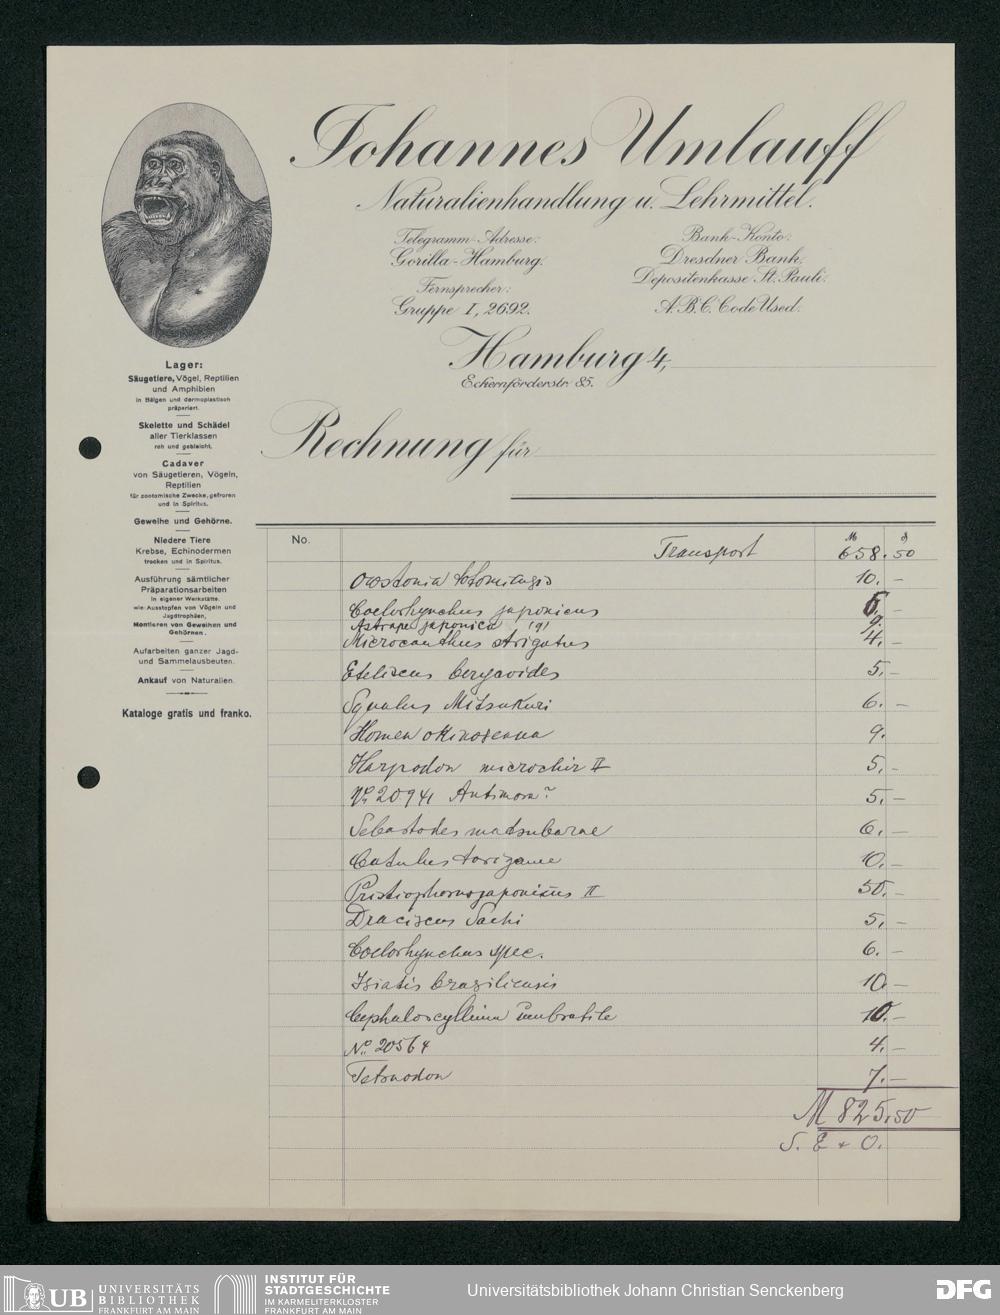 Johannes Umlauff
Naturalienhandlung u. Lehrmittel.
Telegramm-Adresse:
Gorilla-Hamburg.
Fernsprecher:
Gruppe I, 2692.
Bank-Konto:
Dresdner Bank,
Depositenkasse St. Pauli.
A.B.C. Code Used.
Hamburg 4,
Eckernförderstr. 85.
Lager:
Säugetiere, Vögel, Reptilien
und Amphibien
in Bälgen und dermoplastisch
präpariert.
Skelette und Schädel
aller Tierklassen
roh und gebleicht.
Cadaver
von Säugetieren, Vögeln,
Reptilien
für zootomische Zwecke, gefroren
und in Spiritus.
Geweihe und Gehörne.
Niedere Tiere
Krebse, Echinodermen
trocken und in Spiritus.
Ausführung sämtlicher
Präparationsarbeiten
in eigener Werkstätte,
wie: Ausstopfen von Vögeln und
Jagdtrophäen,
Montieren von Geweihen und
Gehörnen.
Aufarbeiten ganzer Jagd-
und Sammelausbeuten.
Ankauf von Naturalien.
Kataloge gratis und franko.
Rechnung für
No.
M ₰
Transport 658.50
10. –
Coelorhynchus japonicus 6. –
Astrape japonica (9) 9.
Microcanthus strigatus 4. –
Eteliscus berycoides 5. –
Squalus Mitsukuri 6. –
9.
Harpodon microchir II 5. –
No 20941 Antimora? 5. –
Sebastodes matsubarae 6. –
Catulus torizame 10. –
Pristiophorus japonicus II 50. –
Draciscus Sachi 5. –
Coelorhynchus spec. 6. –
Isistis brasiliensis 10. –
Cephaloscyllium umbratile 10. –
No. 20564 4. –
Tetrodon 7. –
M 825.50
S. E & O.
UB UNIVERSITÄTS
BIBLIOTHEK
FRANKFURT AM MAIN
INSTITUT FÜR
STADTGESCHICHTE
IM KARMELITERKLOSTER
FRANKFURT AM MAIN
Universitätsbibliothek Johann Christian Senckenberg
DFG